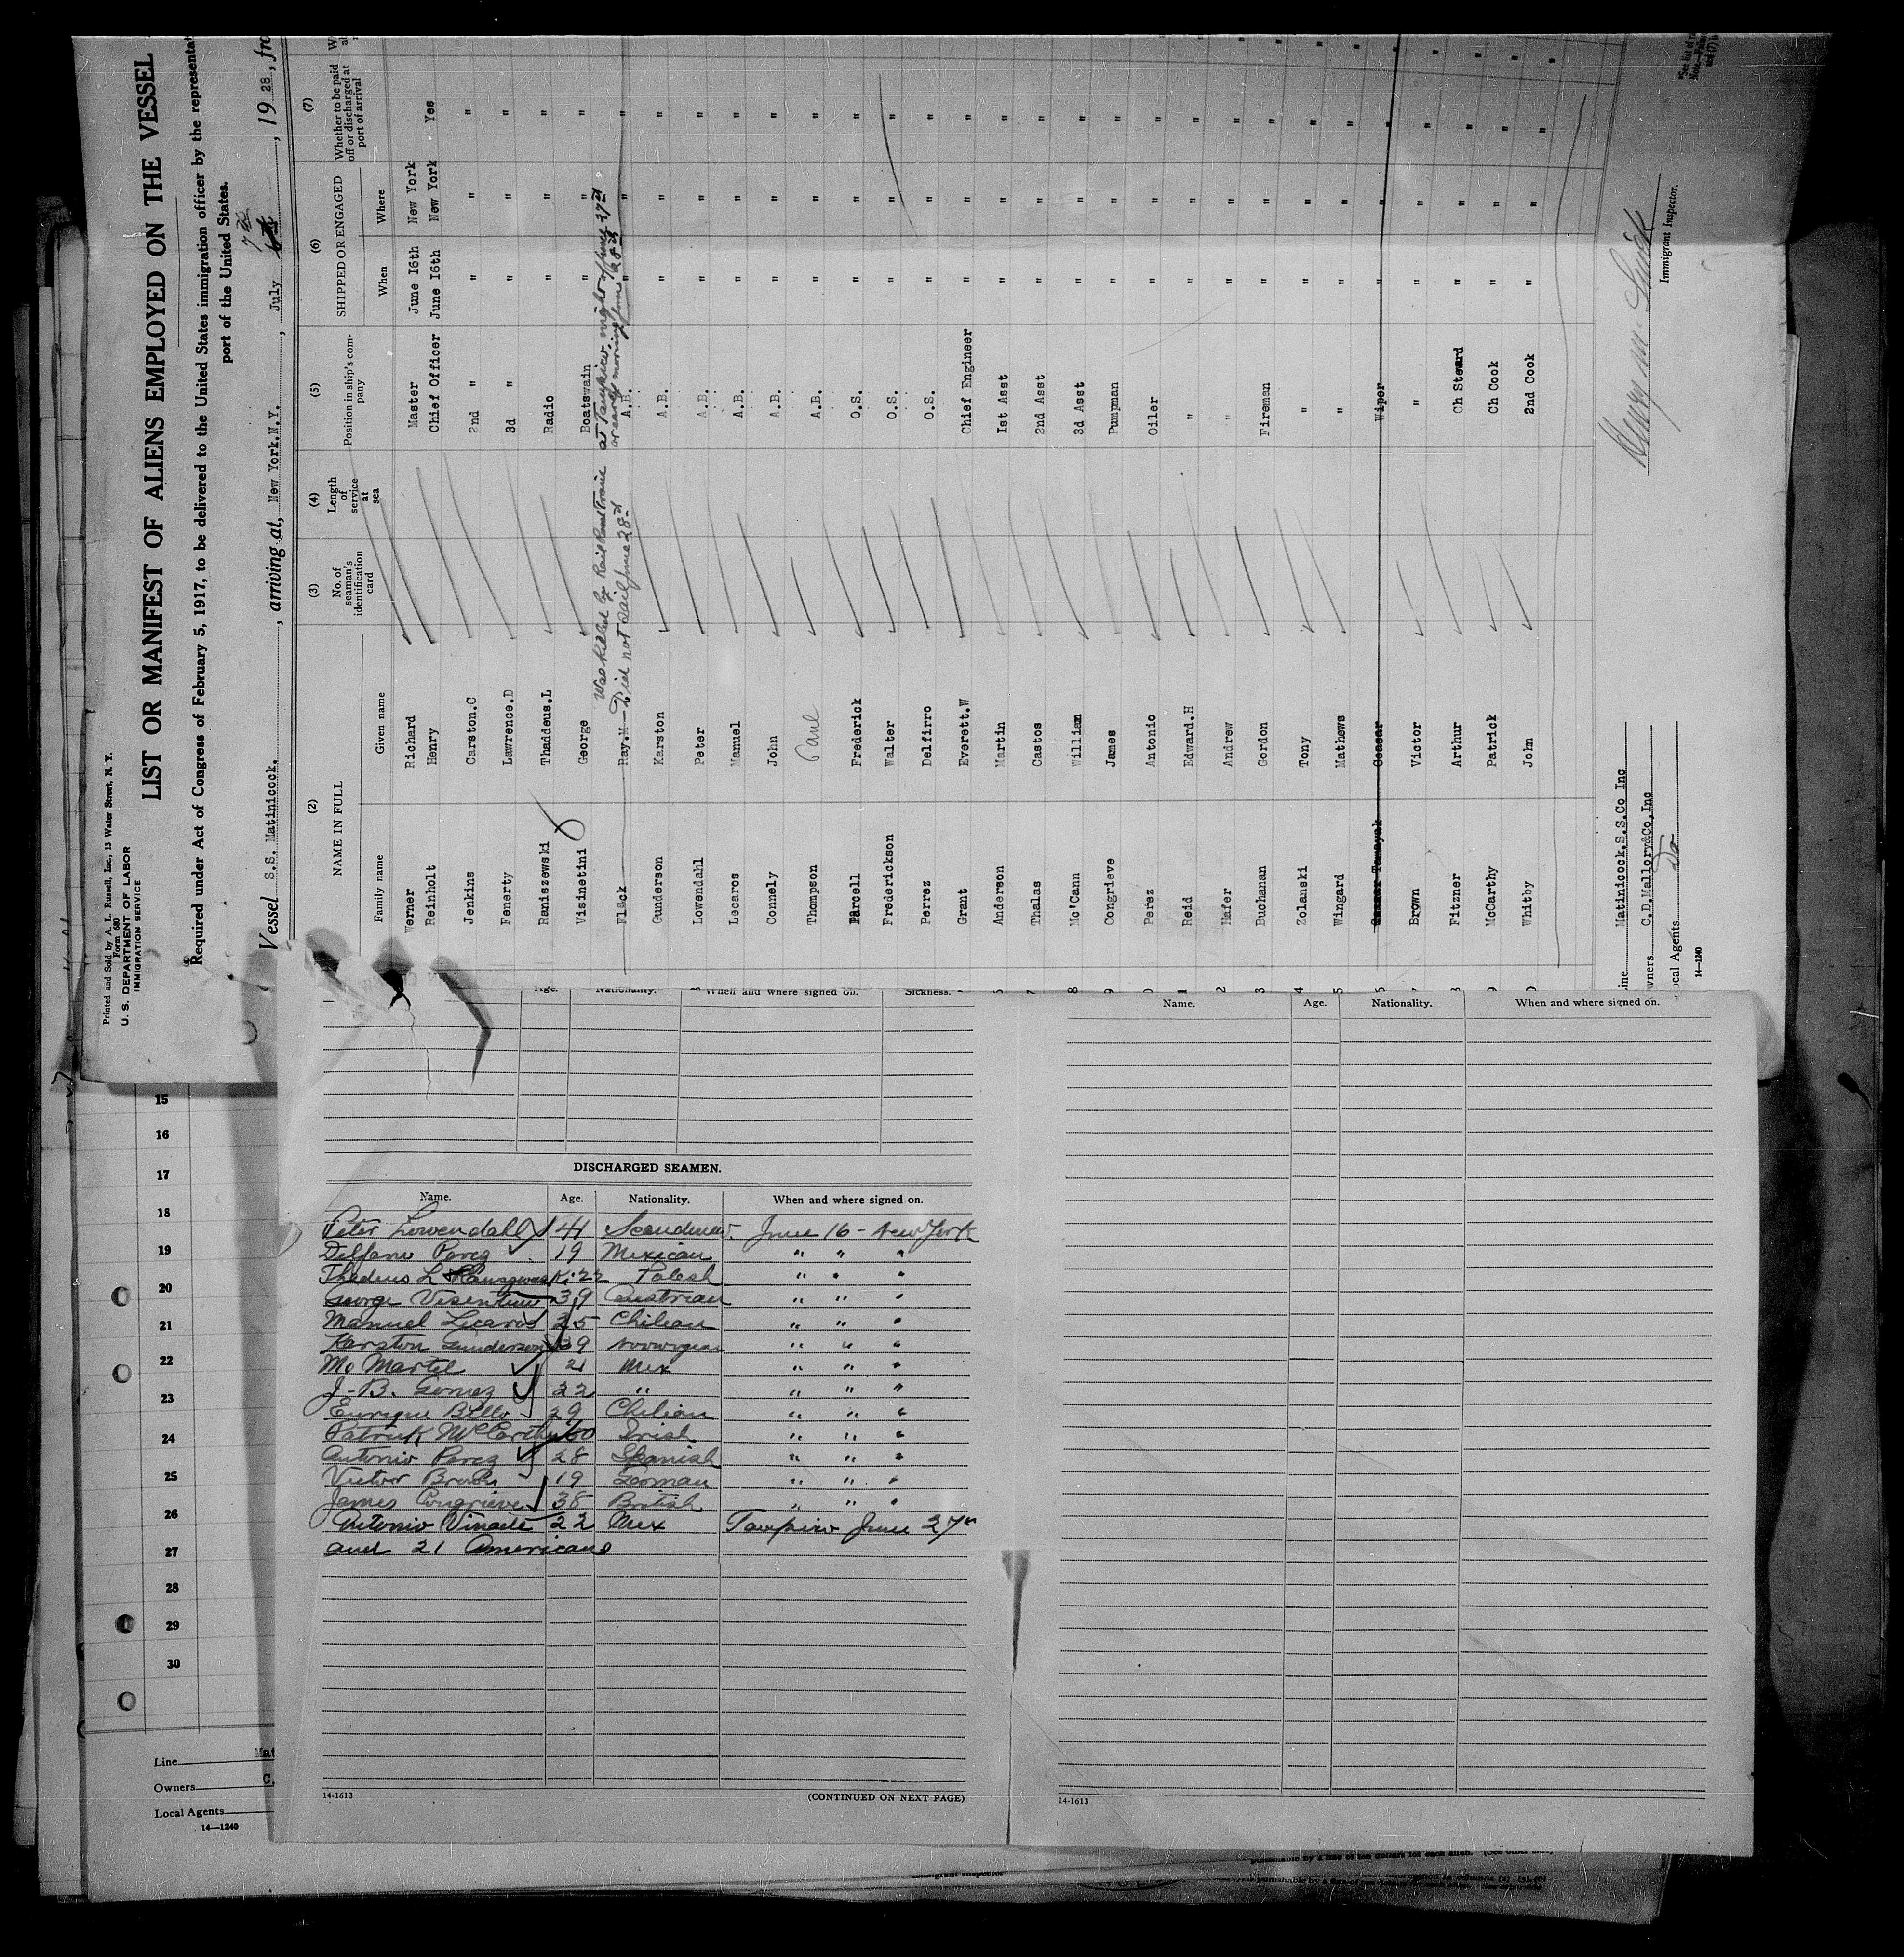 Printed and Sold by A. L. Russell, Inc., 13 Water Street, N. Y.
Form 680
U. S. DEPARTMENT OF LABOR
IMMIGRATION SERVICE
LIST OR MANIFEST OF ALIENS EMPLOYED ON THE VESSEL
Required under Act of Congress of February 5, 1917, to be delivered to the United States immigration officer by the representat
port of the United States.
7th
Vessel S.S. Matinicock. , arriving at, New York.N.Y. , July 6th , 19 28 , fro
(2) (3) (4) (5) (6) (7)
NAME IN FULL No. of seaman's identification card Length of service at sea Position in ship's company SHIPPED OR ENGAGED Whether to be paid off or discharged at port of arrival
Family name Given name When Where
Werner Richard Master June 16th New York
Reinholt Henry Chief Officer June 16th New York Yes
Jenkins Carston.C 2nd " " " "
Fenerty Lawrence.D 3d " " " "
Raniszewski Thaddeus.L Radio " " "
Visinetini George Boatswain " " "
Was killed by Rail Road Train at Tampico night of June 27th
or early morning June 28th
Flack Ray.M - Did not sail June 28th A.B. " " "
Gunderson Karston A.B. " " "
Lowendahl Peter A.B. " " "
Lecaros Manuel A.B. " " "
Connely John A.B. " " "
Thompson Paul A.B. " " "
Parcell Frederick O.S. " " "
Frederickson Walter O.S. " " "
Perrez Delfirro O.S. " " "
Grant Everett.W Chief Engineer " " "
Anderson Martin 1st Asst " " "
Thalas Castos 2nd Asst " " "
Mc'Cann William 3d Asst " " "
Congrieve James Pumpman " " "
Perez Antonio Oiler " " "
Reid Edward.H " " " "
Hafer Andrew " " " "
Buchanan Gordon Fireman " " "
Zolanski Tony " " " "
Wingard Mathews " " " "
Ceasar Wiper " " "
Brown Victor " " " "
Fitzner Arthur Ch Steward " " "
McCarthy Patrick Ch Cook " " "
Whitby John 2nd Cook " " "
ine Matinicock.S.S.Co Inc
wners C.D.Mallory&Co,Inc
ocal Agents Do
14—1240
Immigrant Inspector.
Age. Nationality. When and where signed on. Sickness.
DISCHARGED SEAMEN.
Name. Age. Nationality. When and where signed on.
Peter Lowendahl 41 June 16 - New York
Delfano Perez 19 Mexican " " "
Thadeus L 22 Polish " " "
George Visentini 39 Austrian " " "
Manuel Licaros 25 Chilean " " "
Karston Gunderson 39 Norwegian " " "
Mo Martel 21 Mex " " "
J-B. Gomez 22 " " " "
Enrique Bello 29 Chilian " " "
Patrick McCarthy 60 Irish " " "
Antonio Perez 28 Spanish " " "
Victor Brown 19 German " " "
James Congrieve 38 British " " "
Antonio 22 Mex Tampico June 27th
and 21 Americans
14-1613 (CONTINUED ON NEXT PAGE)
Name. Age. Nationality. When and where signed on.
14-1613
15
16
17
18
19
20
21
22
23
24
25
26
27
28
29
30
Line Mat
Owners C.
Local Agents
14—1240